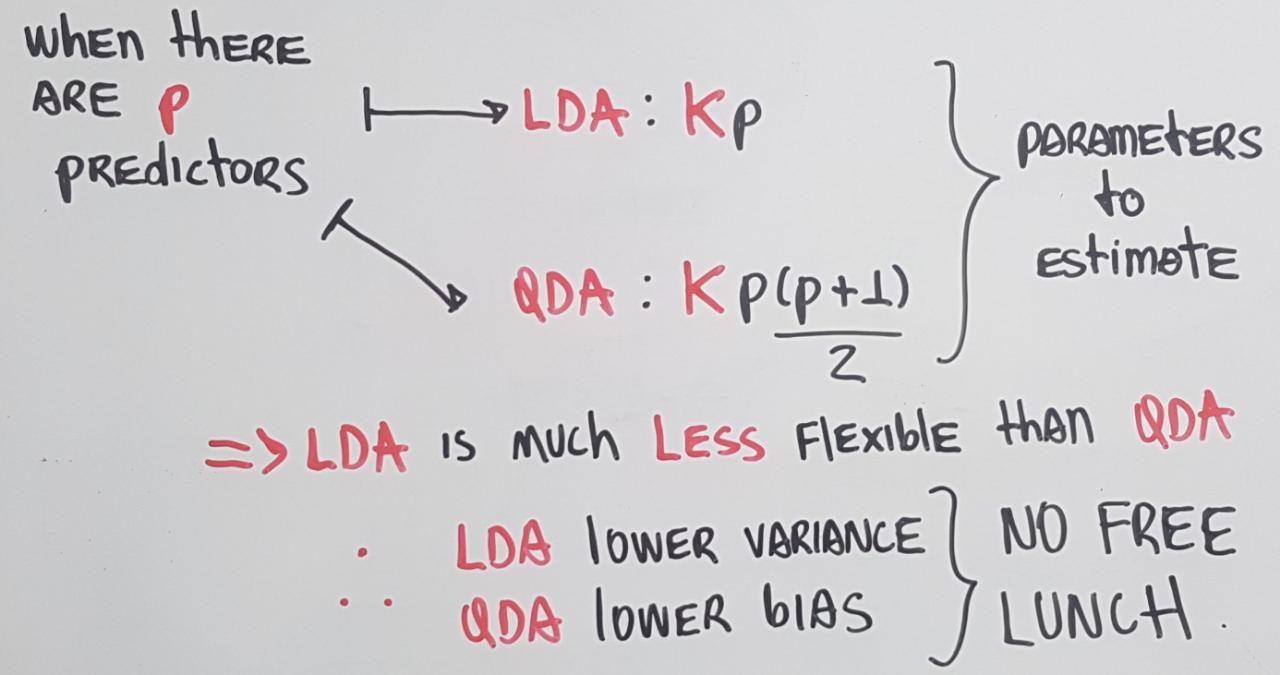 WHEN THERE
ARE p
PREDICTORS
LDA : Kp
QDA : K p(p+1)/2
PARAMETERS
to
EStimatE
=> LDA is much LESS FlExiblE than QDA
∴ LDA lOWER VARIANCE
QDA lOWER bIAS
NO FREE
LUNCH.